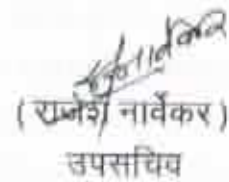 ( राजेश नार्वेकर )
उपसचिव